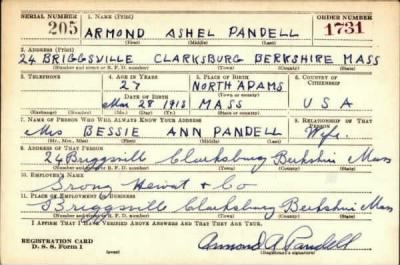 SERIAL NUMBER 1. NAME (Print) ORDER NUMBER
205 ARMOND ASHEL PANDELL 1731
(First) (Middle) (Last)
2. ADDRESS (Print)
24 BRIGGSVILLE CLARKSBURG BERKSHIRE MASS
(Number and street or R. F. D. number) (Town) (County) (State)
3. TELEPHONE 4. AGE IN YEARS 5. PLACE OF BIRTH 6. COUNTRY OF CITIZENSHIP
27 NORTH ADAMS
DATE OF BIRTH (Town or county)
Mar 28 1913 MASS USA
(Exchange) (Number) (Mo.) (Day) (Yr.) (State or country)
7. NAME OF PERSON WHO WILL ALWAYS KNOW YOUR ADDRESS 8. RELATIONSHIP OF THAT PERSON
Mrs BESSIE ANN PANDELL Wife.
(Mr., Mrs., Miss) (First) (Middle) (Last)
9. ADDRESS OF THAT PERSON
24 Briggsville Clarksburg Berkshire Mass
(Number and street or R. F. D. number) (Town) (County) (State)
10. EMPLOYER'S NAME
Strong Hewat & Co
11. PLACE OF EMPLOYMENT OR BUSINESS
Briggsville Clarksburg Berkshire Mass
(Number and street or R. F. D. number) (Town) (County) (State)
I AFFIRM THAT I HAVE VERIFIED ABOVE ANSWERS AND THAT THEY ARE TRUE.
REGISTRATION CARD
D. S. S. Form 1 Armond A Pandell
(Registrant's signature)